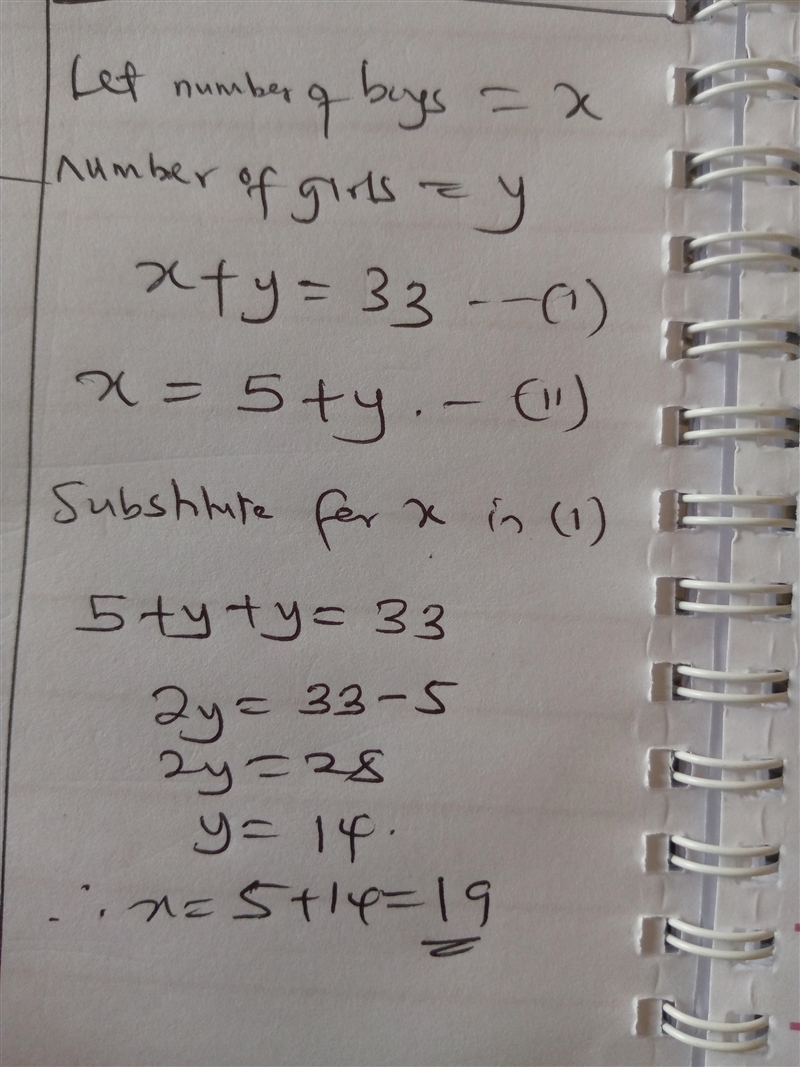 Let number of boys = x
number of girls = y
x + y = 33 --- (i)
x = 5 + y . - (ii)
Substitute for x in (i)
5 + y + y = 33
2y = 33 - 5
2y = 28
y = 14.
∴ x = 5 + 14 = 19